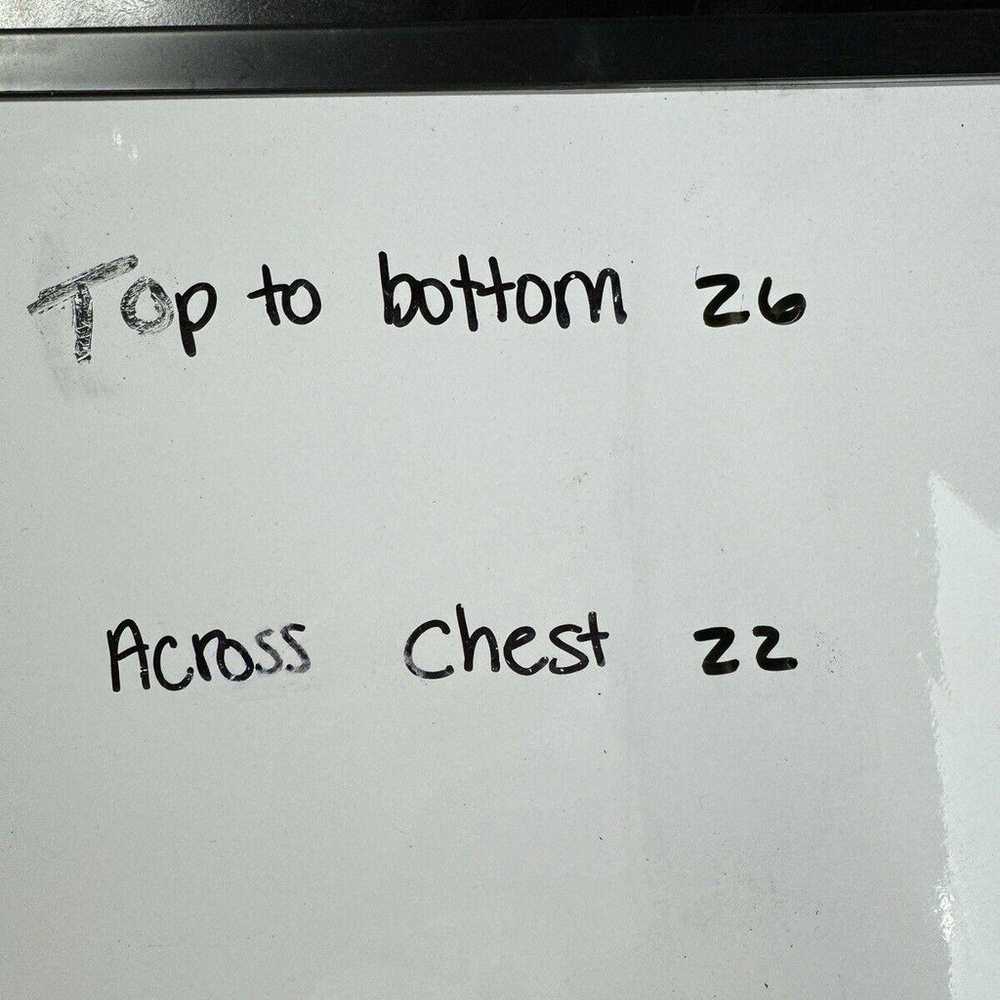 Top to bottom 26
Across Chest 22